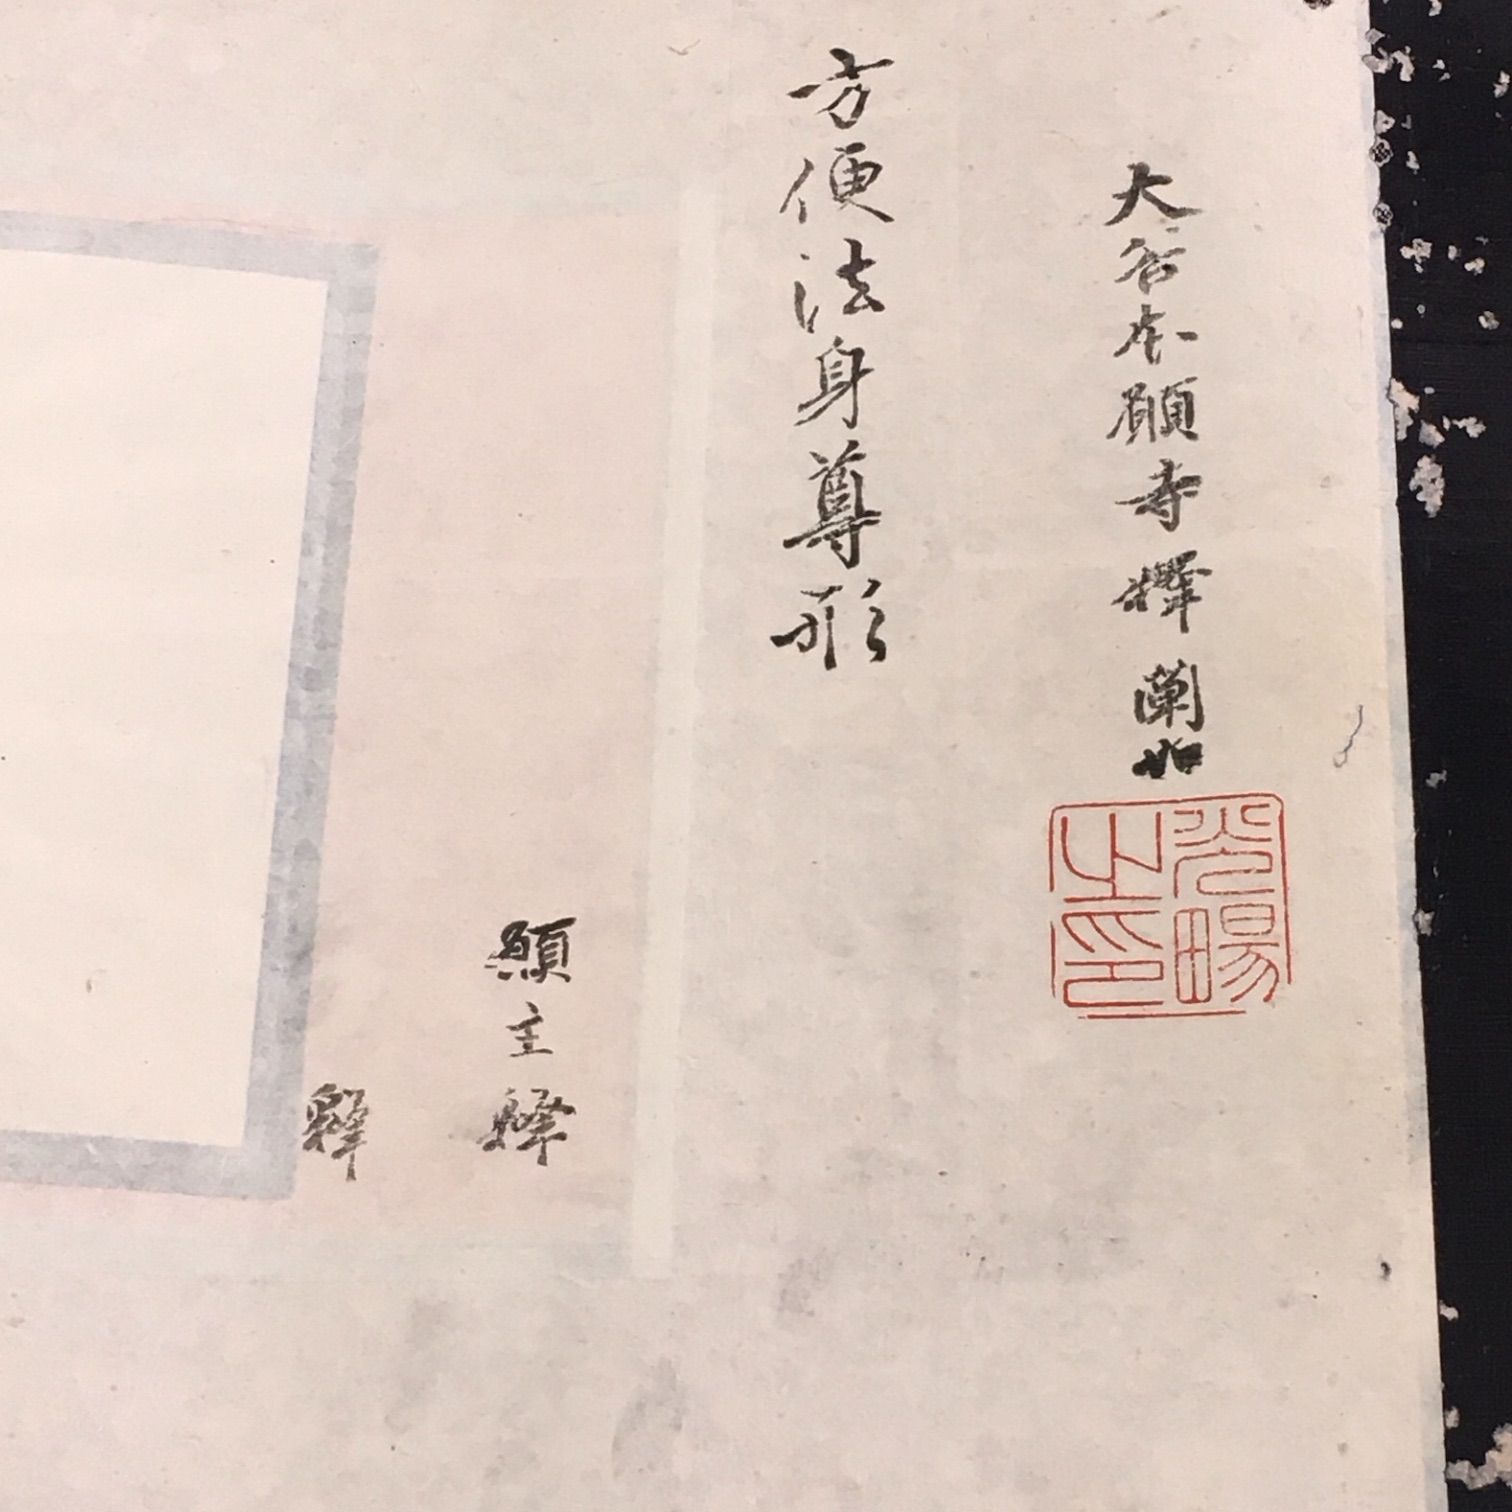 大谷本願寺釋闡如
光暢之印
方便法身尊形
願主釋
釋